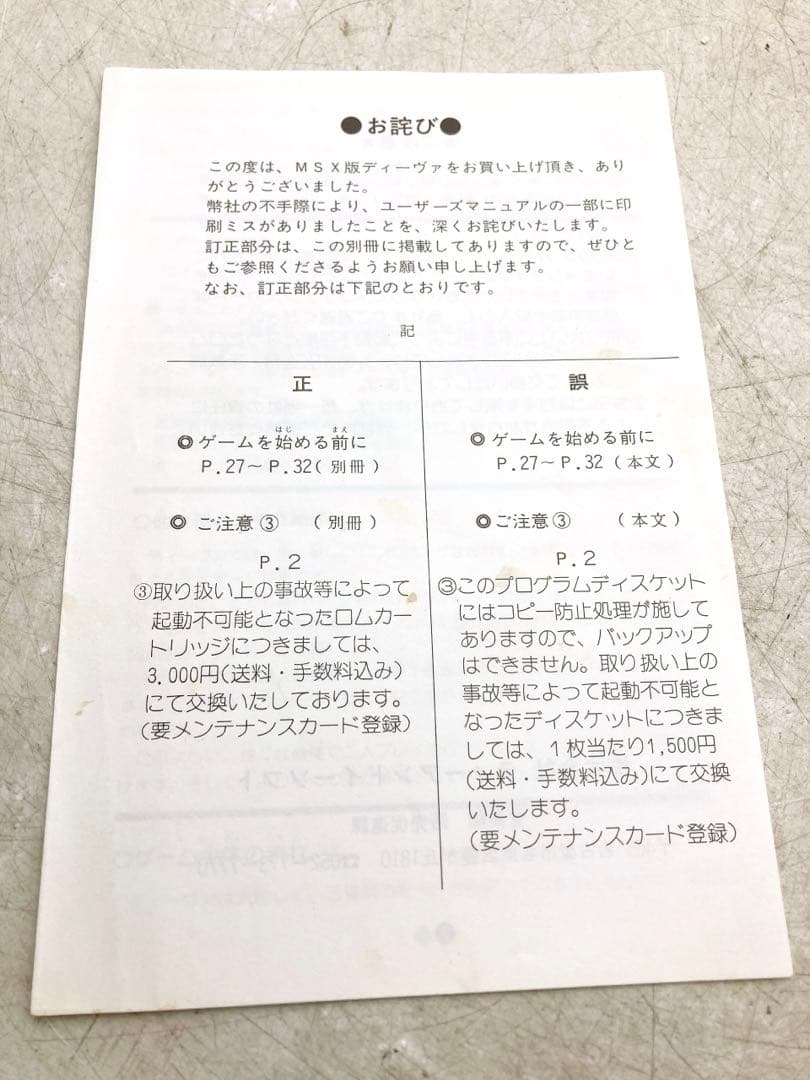 ●お詫び●
この度は、MSX版ディーヴァをお買い上げ頂き、あり
がとうございました。
幣社の不手際により、ユーザーズマニュアルの一部に印
刷ミスがありましたことを、深くお詫びいたします。
訂正部分は、この別冊に掲載してありますので、ぜひと
もご参照くださるようお願い申し上げます。
なお、訂正部分は下記のとおりです。
記
正
◎ゲームを始める前に
はじ まえ
P.27〜P.32(別冊)
◎ご注意③ (別冊)
P.2
③取り扱い上の事故等によって
起動不可能となったロムカー
トリッジにつきましては、
3,000円(送料・手数料込み)
にて交換いたしております。
(要メンテナンスカード登録)
誤
◎ゲームを始める前に
P.27〜P.32(本文)
◎ご注意③ (本文)
P.2
③このプログラムディスケット
にはコピー防止処理が施して
ありますので、バックアップ
はできません。取り扱い上の
事故等によって起動不可能と
なったディスケットにつきま
しては、1枚当たり1,500円
(送料・手数料込み)にて交換
いたします。
(要メンテナンスカード登録)